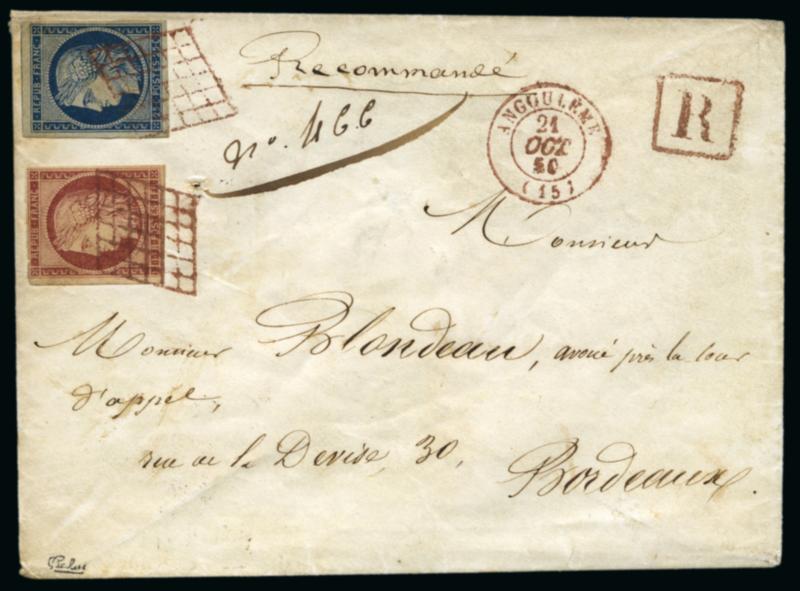 REPUB. FRANC.
25 C. POSTES 25 C.
Recommandé
nº. 466
ANGOULÊME
21
OCT
50
(15)
R
REPUB. FRANC.
Monsieur
Monsieur Blondeau, avoué près la Cour
d'appel,
rue de la Devise, 30,
Bordeaux.